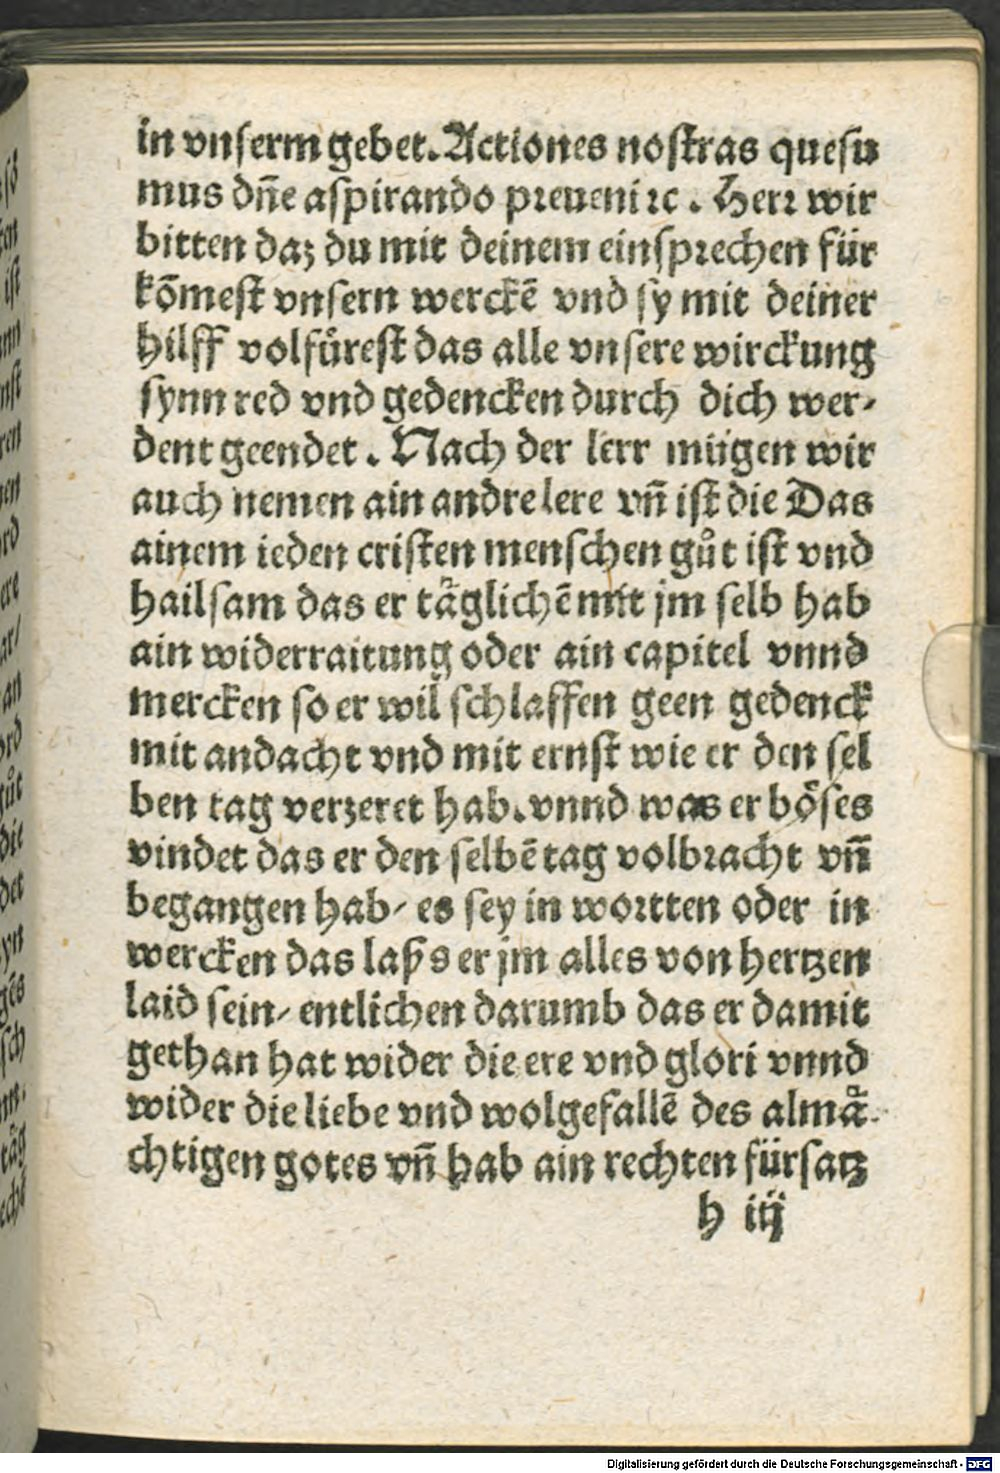 in vnserm gebet. Actiones nostras quesu
mus dn̄e aspirando preueni ⁊c. Herr wir
bitten daz du mit deinem einsprechen für
kōmest vnsern werckē vnd sy mit deiner
hilff volfürest das alle vnsere wirckung
synn red vnd gedencken durch dich wer-
dent geendet. Nach der lerr mügen wir
auch nemen ain andre lere vn̄ ist die Das
ainem ieden cristen menschen gůt ist vnd
hailsam das er täglichē mit jm selb hab
ain widerraitung oder ain capitel vnnd
mercken so er wil schlaffen geen gedenck
mit andacht vnd mit ernst wie er den sel
ben tag verzeret hab. vnnd was er böses
vindet das er den selbē tag volbracht vn̄
begangen hab/ es sey in wortten oder in
wercken das laß s er jm alles von hertzen
laid sein/ entlichen darumb das er damit
gethan hat wider die ere vnd glori vnnd
wider die liebe vnd wolgefallē des almä-
chtigen gotes vn̄ hab ain rechten fürsatz
h iij
Digitalisierung gefördert durch die Deutsche Forschungsgemeinschaft - DFG